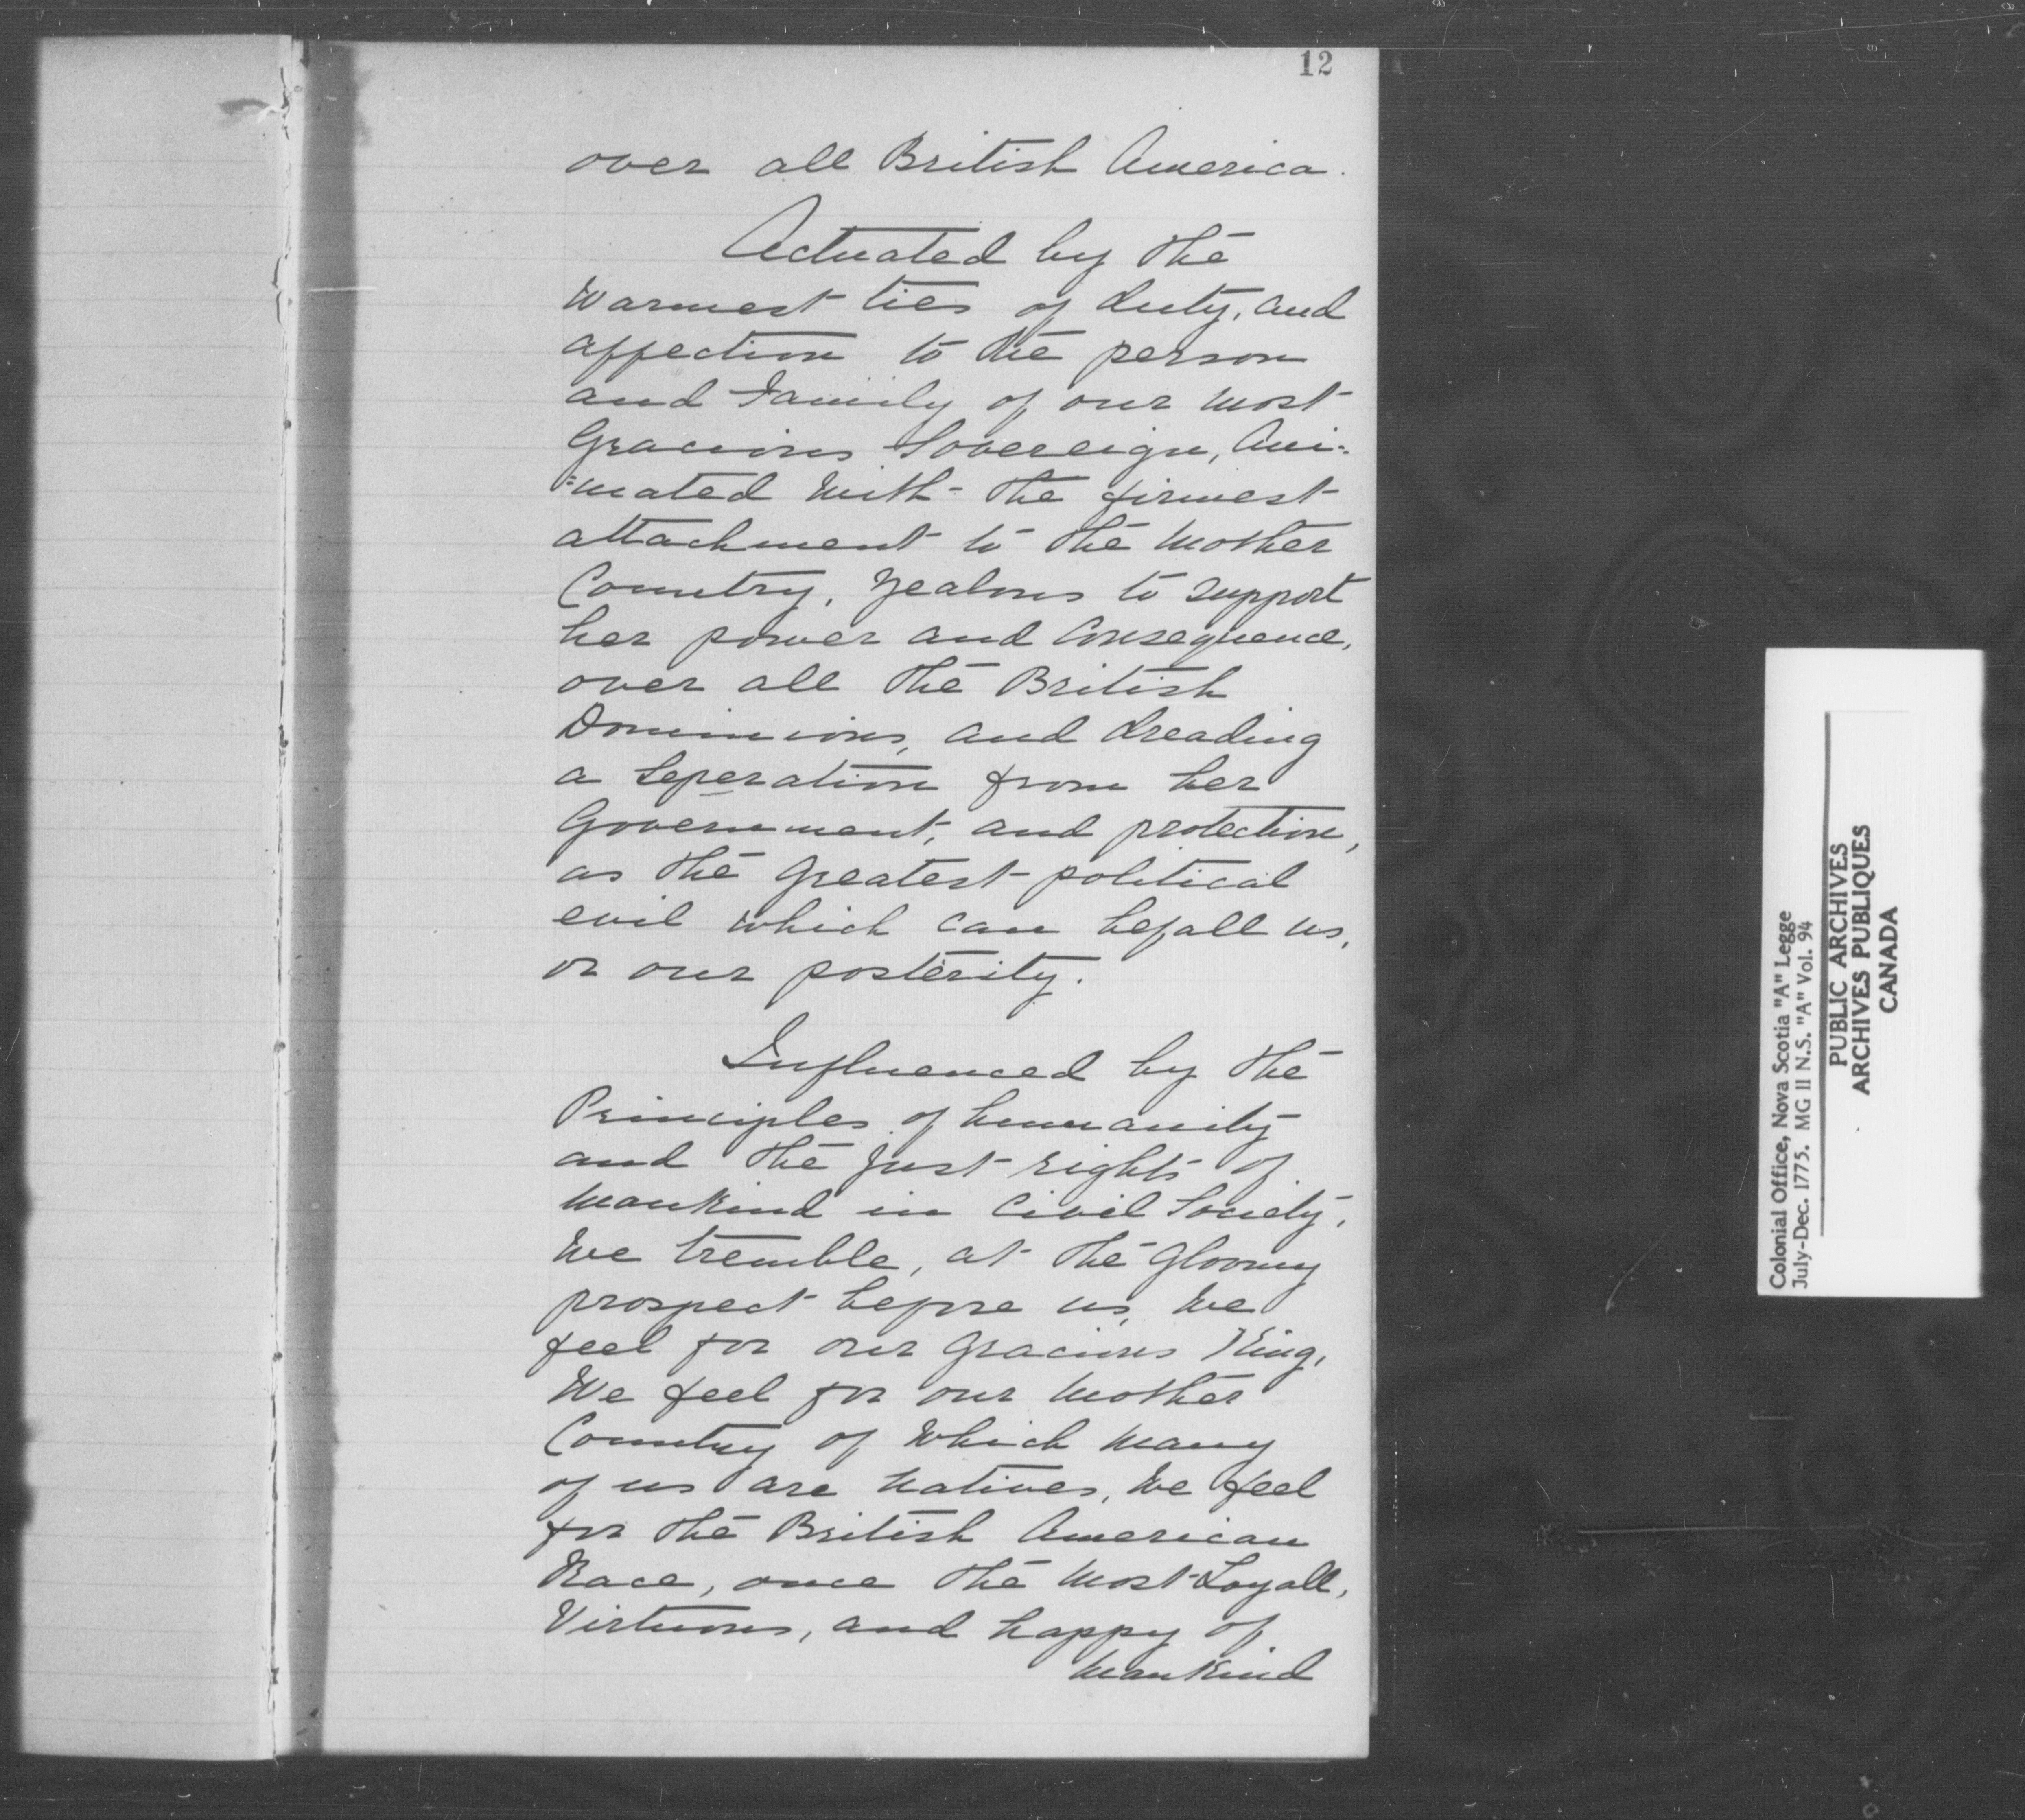 12
over all British America.
Actuated by the
warmest ties of duty, and
affection to the person
and Family of our most
Gracious Sovereign, Ani=
=mated with the firmest
attachment to the Mother
Country, Zealous to support
her power and Consequence,
over all the British
Dominions, and dreading
a Seperation from her
Government, and protection,
as the greatest political
evil which can befall us,
or our posterity.
Influenced by the
Principles of humanity
and the just rights of
Mankind in Civil Society,
We tremble, at the gloomy
prospect before us, We
feel for our gracious King,
We feel for our Mother
Country of which many
of us are Natives, We feel
for the British American
Race, once the most Loyall,
Virtuous, and happy of
Mankind
Colonial Office, Nova Scotia "A" Legge
July-Dec. 1775. MG 11 N.S. "A" Vol. 94
PUBLIC ARCHIVES
ARCHIVES PUBLIQUES
CANADA